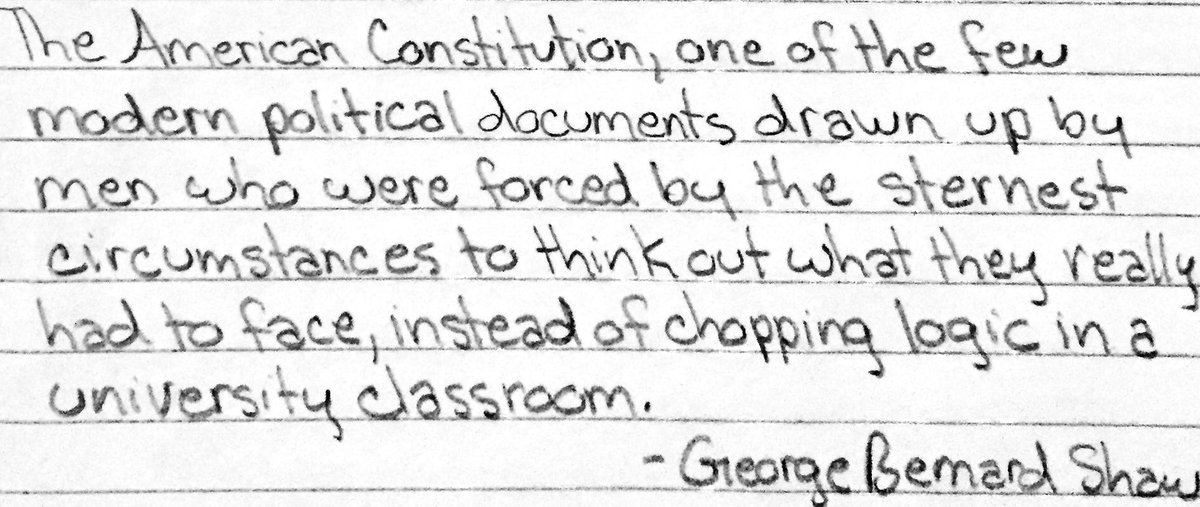 The American Constitution, one of the few
modern political documents drawn up by
men who were forced by the sternest
circumstances to think out what they really
had to face, instead of chopping logic in a
university classroom.
- George Bernard Shaw